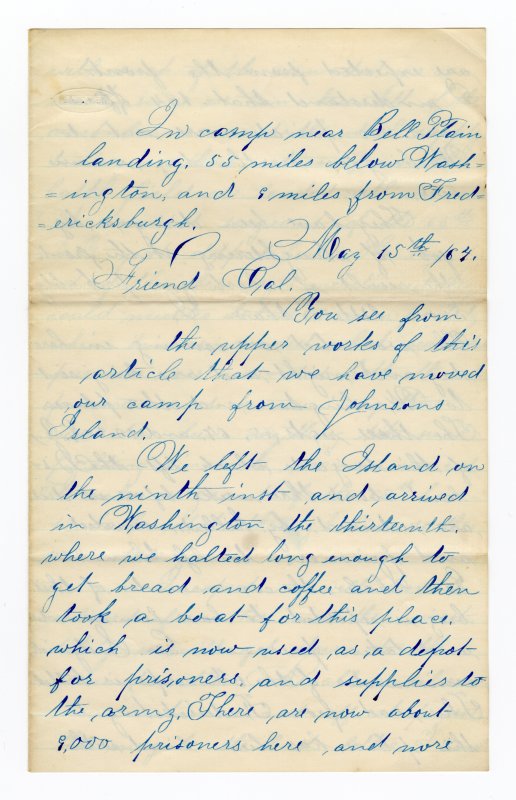 In camp near Bell Plain
landing. 55 miles below Wash=
=ington, and 9 miles from Fred=
=ericksburgh.
May 15th /64.
Friend Cal.
You see from
the upper works of this
article that we have moved
our camp from Johnsons
Island.
We left the Island, on
the ninth inst, and arrived
in Washington the thirteenth.
where we halted long enough to
get bread and coffee and then
took a boat for this place.
which is now used, as, a depot
for prisoners. and supplies to
the army. There are now about
9,000 prisoners here and more